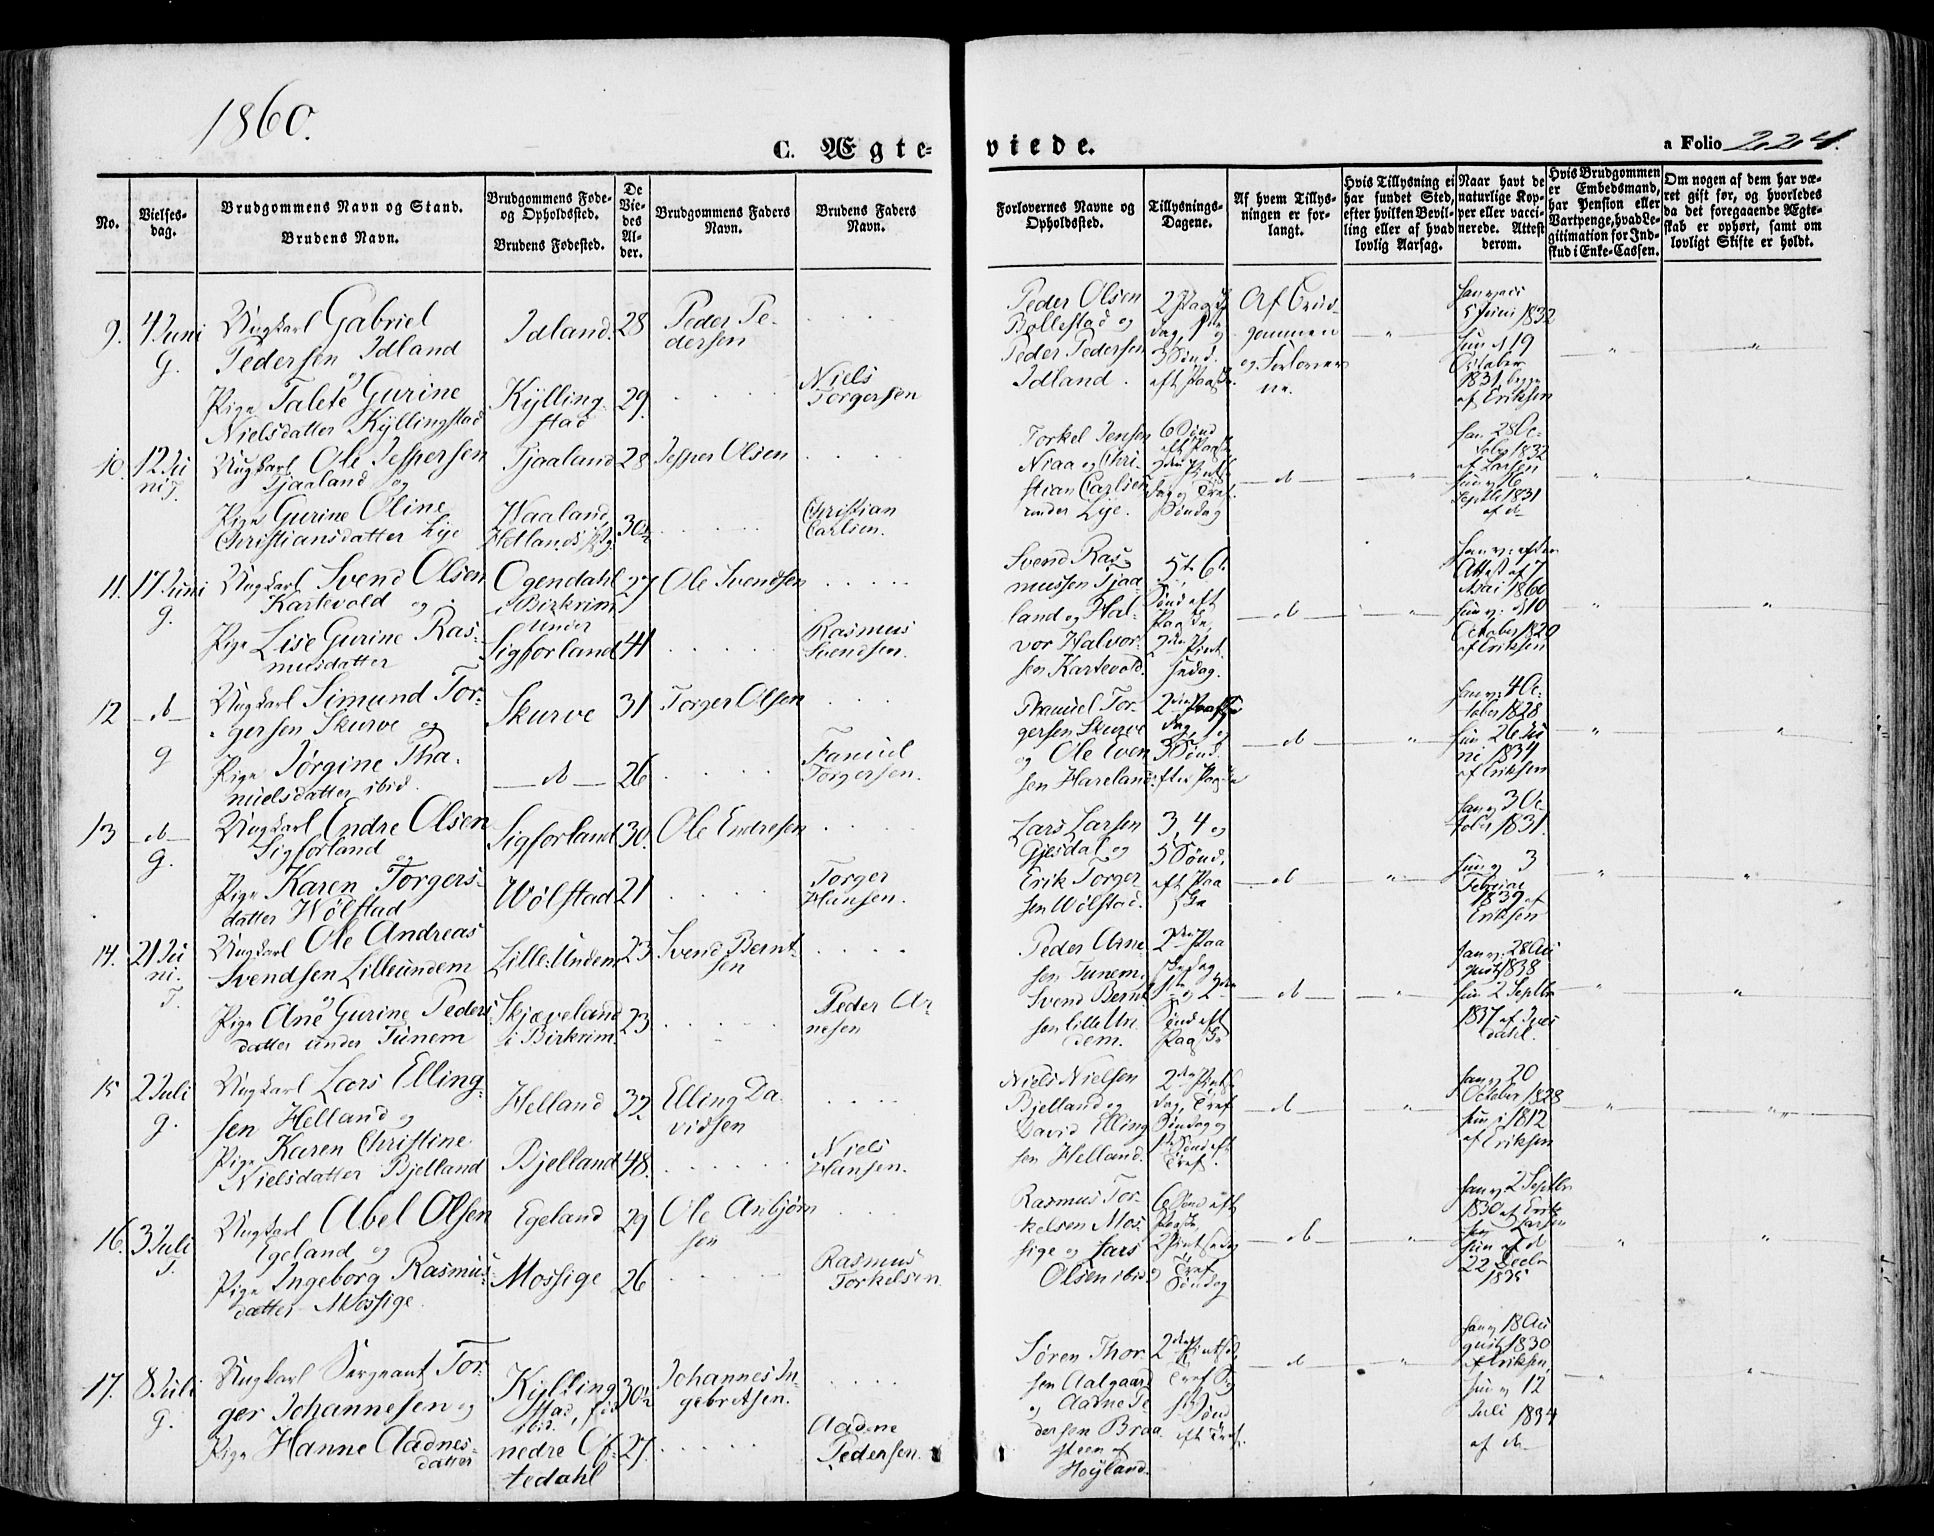 1860.
C. Ægte-
viede.
a Folio 224.
No.
Vielses-
dag.
Brudgommens Navn og Stand.
Brudens Navn.
Brudgommens Føde-
og Opholdssted.
Brudens Fødested.
De
Vie-
des
Al-
der.
Brudgommens Faders
Navn.
Brudens Faders
Navn.
Forlovernes Navne og
Opholdssted.
Tillysnings-
Dagene.
Af hvem Tillys-
ningen er for-
langt.
Hvis Tillysning ei
har fundet Sted,
efter hvilken Bevil-
ling eller af hvad
lovlig Aarsag.
Naar havt de
naturlige Kop-
per eller vacci-
nerede. Attest
derom.
Hvis Brudgommen
er Embedsmand,
har Pension eller
Vartpenge, hvad Le-
gitimation for Ind-
skud i Enke-Cassen.
Om nogen af dem har væ-
ret gift før, og hvorledes
da det foregaaende Ægte-
skab er ophørt, samt om
lovligt Skifte er holdt.
9.
4 Juni
g.
Ungkarl Gabriel
Pedersen Idland
og
Pige Talete Gurine
Nielsdatter Kyllingstad
Idland.
Kylling-
stad
28
29.
Peder Pe-
dersen
Niels
Torgersen
Peder Olsen
Bollestad og
Peder Pedersen
Idland.
2 Paaske
dag, 1ste og
3 Sønd.
eft Paaske
Af Brud-
gommen
og Forlover-
ne.
"
5 Juni 1832
19
October
1831, begge
af Eriksen
"
"
10.
12 Ju
ni T.
Ungkarl Ole Jespersen
Tjaaland og
Pige Gurine Oline
Christiansdatter Lye
Tjaaland
Waaland,
Hellands Pg.
28
30½
Jesper Olsen
Christian
Carlsen.
Torkel Jensen
Niaa og Chri-
stian Carlsen
under Lye.
6 Sønd
eft Paaske
2den Pintse
dag og Tref.
Søndag
do
"
28 Oc-
tober 1832
af Larsen
16
Septbr 1831
af do
"
"
11.
17 Juni
g.
Ungkarl Svend Olsen
Kartevold og
Pige Lise Gurine Ras-
musdatter
Ogendahl
i Birkrim
under
Sigforland
27
41
Ole Svendsen
Rasmus
Svendsen.
Svend Ras-
mussen Tjaa-
land og Hal-
vor Halvor-
sen Kartevold.
5te, 6te
Sønd eft
Paaske,
2den Pint-
sedag.
do
"
Attest af 7
Mai 1860
10
October 1820
af Eriksen
"
"
12
do
g
Ungkarl Simund Tor-
gersen Skurve og
Pige Jørgine Tha-
nuelsdatter ibid.
Skurve
do
31
26
Torger Olsen
Fanuel
Torgersen.
Thanuel Tor-
gersen Skurve
og Ole Even-
sen Haveland.
2den Paaske
dag, 1 og
3 Sønd.
efter Paaske
do
"
4 Oc-
tober 1828
26 Ju
ni 1834
af Eriksen
"
"
13
do
g.
Ungkarl Endre Olsen
Sigforland
og
Pige Karen Torgers-
datter Wølstad
Sigforland
Wølstad
30.
21
Ole Endresen
Torger
Hansen.
Lars Larsen
Gjesdal og
Erik Torger-
sen Wølstad.
3, 4 og
5 Sønd.
eft Paa
ske
do
"
3 Oc-
tober 1831.
3
Februar
1839 af
Eriksen
"
"
14.
21 Ju
ni.
T.
Ungkarl Ole Andreas
Svendsen Lilleundem
og
Pige Ane Gurine Peders
datter under Tunem
Lille Undem
Skjæveland
i Birkrim
23
23.
Svend Bernt-
sen
Peder Ar-
nesen
Peder Arne
sen Tunem,
Svend Bernt
sen Lille Un-
dem.
2den Paa
skedag
1ste og 2den
Sønd eft
Paaske
do
"
28 Au
gust 1838
2 Septbr
1837 af
dahl.
"
"
15
2 Juli
g.
Ungkarl Lars Elling-
sen Helland og
Pige Karen Christine
Nielsdatter Bjelland
Helland
Bjelland
32
48.
Elling Da-
vidsen
Niels
Hansen.
Niels Nielsen
Bjelland og
David Elling
sen Helland.
2den Pintse
dag, Tref
Søndag og
1ste Sønd eft
Tref.
do
"
20
October 1828
1812
af Eriksen
"
"
16.
3 Juli
T.
Ungkarl Abel Olsen
Egeland og
Pige Ingeborg Rasmus-
datter Mossige.
Egeland
Mossige
29
26
Ole Anbjørn
sen
Rasmus
Torkelsen
Rasmus Tor-
kelsen Mos-
sige og Lars
Olsen ibid
6 Sønd eft
Paaske,
2 Pintsedag
og Tref
Søndag
do
"
2 Septbr
1830 af Erik
sen
af do
22 Decbr
1835
"
"
17.
8 Juli
g.
Ungkarl Sergeant Tor-
ger Johannesen og
Pige Hanne Aadnes-
datter
Kylling
stad,
ibid.
nedre Of-
tedahl
30½
27.
Johannes In-
gebretsen.
Aadne
Pedersen.
Søren Thor-
sen Aalgaard
og Aadne Pe
dersen Braa-
steen af
Høyland.
2den Pintsed.
Tref Søg
Sønd
eft Tref.
do
"
18 Au
gust 1830
af Eriksen,
12
Juli 1834
af do
"
"